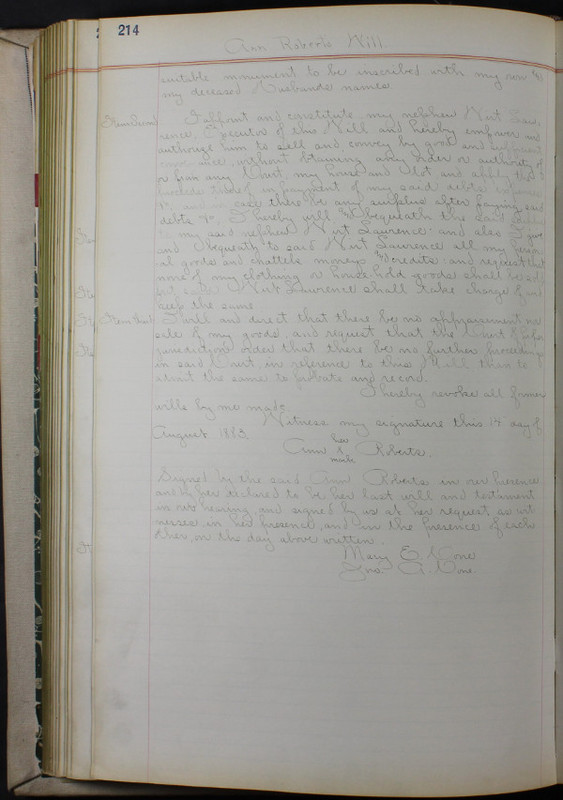 214
Ann Roberts Will.
suitable monument to be inscribed with my own &
my deceased Husbands names.
Item Second I appoint and constitute my nephew Wirt Law-
rence, Executor of this Will and hereby empower and
authorize him to sell and convey by good and sufficient
conveyance, without obtaining any order or authority of
or from any Court, my house and lot and apply the
proceeds thereof in payment of my said debts
&c, and in case there be any surplus after paying said
debts &c, I hereby will & bequeath the said
to my said nephew Wirt Lawrence: and also I give
and bequeath to said Wirt Lawrence all my person-
al goods and chattels moneys & credits: and request that
none of my clothing or household goods shall be sold
but said Wirt Lawrence shall take charge of and
keep the same.
Item third I will and direct that there be no appraisement nor
sale of my goods, and request that the Court of
jurisdiction order that there be no further proceedings
in said Court, in reference to this Will than to
admit the same to probate and record.
I hereby revoke all former
wills by me made.
Witness my signature this day of
August 1883.
her
Ann X Roberts.
mark
Signed by the said Ann Roberts in our presence
and by her declared to be her last will and testament
in our hearing, and signed by us at her request as wit
nesses in her presence, and in the presence of each
other, on the day above written.
Mary E. Cone
Jno. A. Cone.